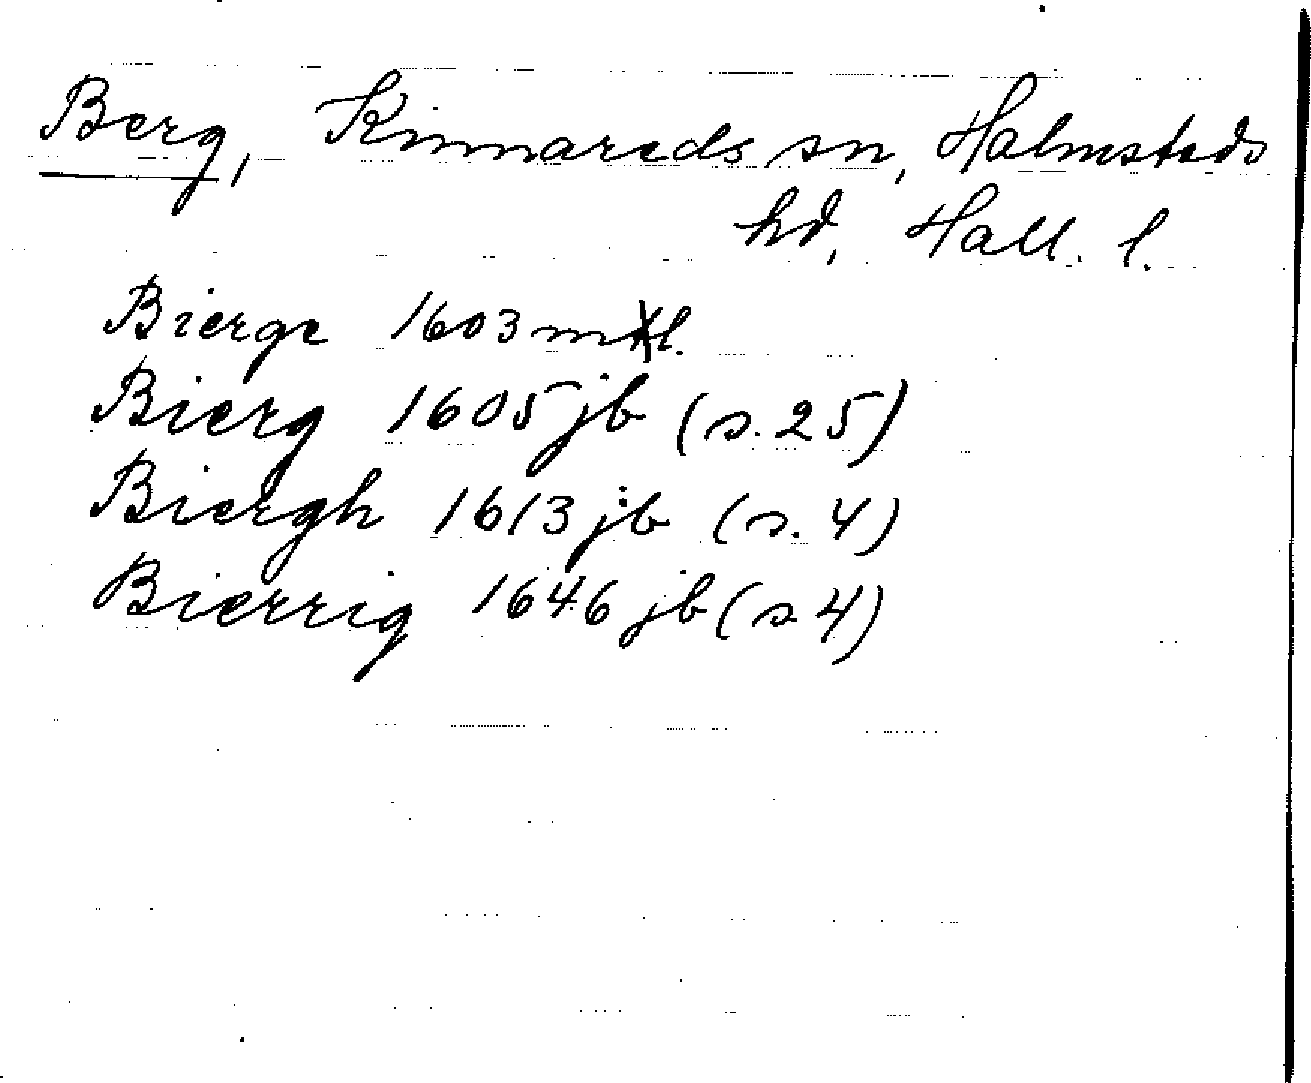 Berg, Kinnareds sn, Halmstads
hd, Hall. l.
Bierge 1603 mtl.
Bierg 1605 jb (s. 25)
Biergh 1613 jb (s. 4)
Bierrig 1646 jb (s 4)